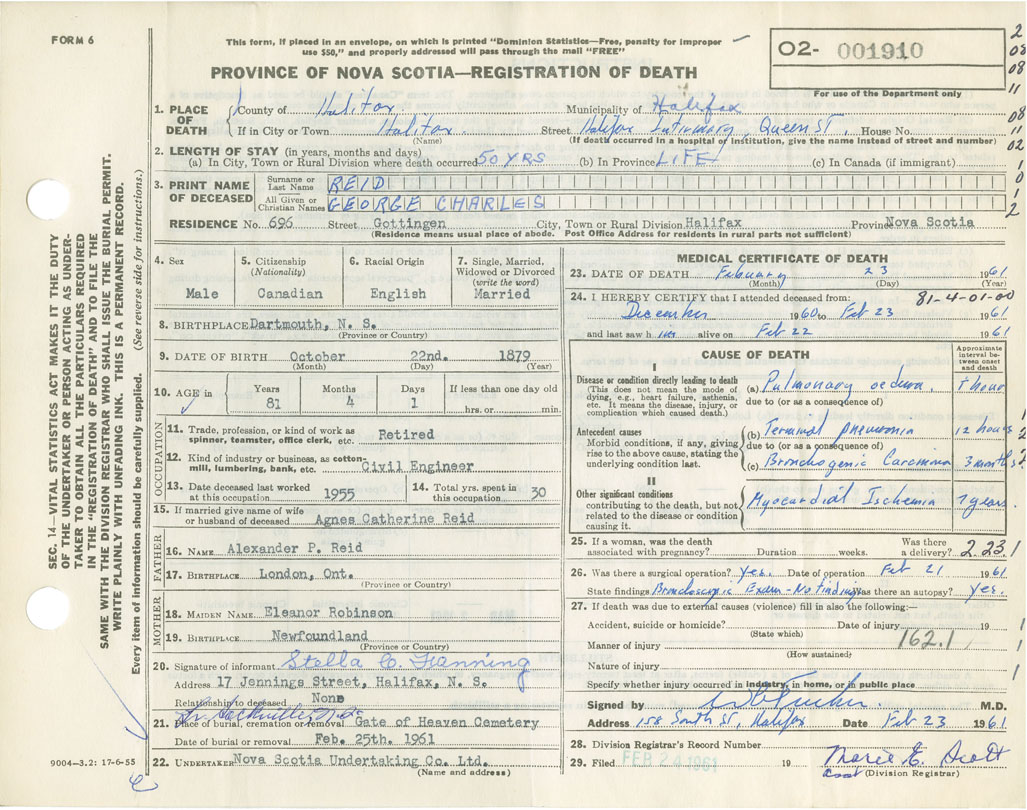 FORM 6
This form, if placed in an envelope, on which is printed "Dominion Statistics—Free, penalty for improper
use $50," and properly addressed will pass through the mail "FREE"
02- 001910
For use of the Department only
PROVINCE OF NOVA SCOTIA—REGISTRATION OF DEATH
SEC. 14—VITAL STATISTICS ACT MAKES IT THE DUTY
OF THE UNDERTAKER OR PERSON ACTING AS UNDER-
TAKER TO OBTAIN ALL THE PARTICULARS REQUIRED
IN THE "REGISTRATION OF DEATH" AND TO FILE THE
SAME WITH THE DIVISION REGISTRAR WHO SHALL ISSUE THE BURIAL PERMIT.
WRITE PLAINLY WITH UNFADING INK. THIS IS A PERMANENT RECORD.
Every item of information should be carefully supplied. (See reverse side for instructions.)
1. PLACE OF DEATH
County of Halifax. Municipality of Halifax
If in City or Town Halifax. Street Halifax Infirmary, Queen St. House No.
(Name) (If death occurred in a hospital or institution, give the name instead of street and number)
2. LENGTH OF STAY (in years, months and days)
(a) In City, Town or Rural Division where death occurred 50 YRS (b) In Province LIFE (c) In Canada (if immigrant)
3. PRINT NAME OF DECEASED
Surname or Last Name REID
All Given or Christian Names GEORGE CHARLES
RESIDENCE No. 696 Street Gottingen City, Town or Rural Division Halifax Province Nova Scotia
(Residence means usual place of abode. Post Office Address for residents in rural parts not sufficient)
4. Sex
Male
5. Citizenship
(Nationality)
Canadian
6. Racial Origin
English
7. Single, Married,
Widowed or Divorced
(write the word)
Married
8. BIRTHPLACE Dartmouth, N. S.
(Province or Country)
9. DATE OF BIRTH October 22nd. 1879
(Month) (Day) (Year)
10. AGE in
Years Months Days If less than one day old
81 4 1 hrs. or min.
OCCUPATION
11. Trade, profession, or kind of work as
spinner, teamster, office clerk, etc. Retired
12. Kind of industry or business, as cotton-
mill, lumbering, bank, etc. Civil Engineer
13. Date deceased last worked
at this occupation 1955
14. Total yrs. spent in
this occupation 30
15. If married give name of wife
or husband of deceased Agnes Catherine Reid
FATHER
16. NAME Alexander P. Reid
17. BIRTHPLACE London, Ont.
(Province or Country)
MOTHER
18. MAIDEN NAME Eleanor Robinson
19. BIRTHPLACE Newfoundland
(Province or Country)
20. Signature of informant Stella C. Fanning
Address 17 Jennings Street, Halifax, N. S.
Relationship to deceased None
21. Place of burial, cremation or removal Gate of Heaven Cemetery
Date of burial or removal Feb. 25th. 1961
22. UNDERTAKER Nova Scotia Undertaking Co. Ltd.
(Name and address)
9004—3.2: 17-6-55
MEDICAL CERTIFICATE OF DEATH
23. DATE OF DEATH February 23 1961
(Month) (Day) (Year)
24. I HEREBY CERTIFY that I attended deceased from: 81-4-01-00
December 1960 to Feb 23 1961
and last saw him alive on Feb 22 1961
CAUSE OF DEATH
Approximate
interval be-
tween onset
and death
I
Disease or condition directly leading to death
(This does not mean the mode of
dying, e.g., heart failure, asthenia,
etc. It means the disease, injury, or
complication which caused death.)
(a) Pulmonary oedema, 1 hour
due to (or as a consequence of)
Antecedent causes
Morbid conditions, if any, giving
rise to the above cause, stating the
underlying condition last.
(b) Terminal pneumonia 12 hours
due to (or as a consequence of)
(c) Bronchogenic Carcinoma 3 months
II
Other significant conditions
contributing to the death, but not
related to the disease or condition
causing it.
Myocardial Ischemia 7 years.
25. If a woman, was the death
associated with pregnancy? Duration weeks. Was there
a delivery? 2 23 1
26. Was there a surgical operation? Yes. Date of operation Feb 21 1961
State findings Bronchoscopic Exam - No finding Was there an autopsy? Yes.
27. If death was due to external causes (violence) fill in also the following:—
Accident, suicide or homicide? Date of injury 19
(State which)
Manner of injury 162.1
(How sustained)
Nature of injury
Specify whether injury occurred in industry, in home, or in public place
Signed by M.D.
Address 158 South St, Halifax Date Feb 23 1961
28. Division Registrar's Record Number
29. Filed FEB 24 1961 19 Marie E. Scott
asst (Division Registrar)